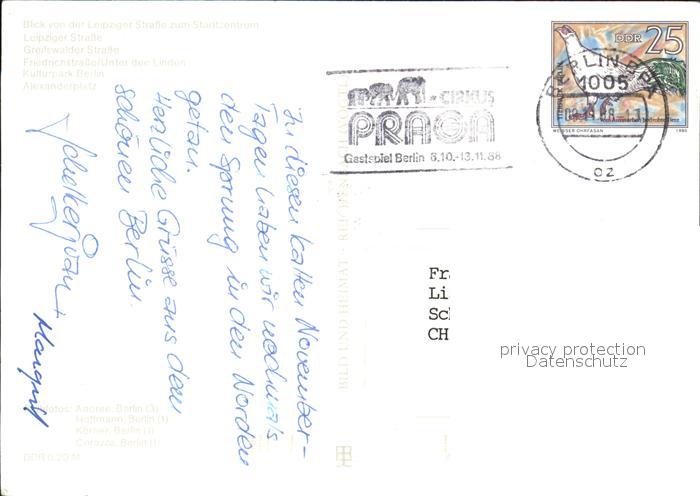 Blick von der Leipziger Straße zum Stadtzentrum
Leipziger Straße
Greifswalder Straße
Friedrichstraße/Unter den Linden
Kulturpark Berlin
Alexanderplatz
In diesen kalten November-
Tagen haben wir nochmals
den Sprung in den Norden
getan.
Herzliche Grüsse aus dem
schönen Berlin.
Margrit
CIRKUS
PRAGA
Gastspiel Berlin 8.10.-13.11.88
DDR 25
WEISSER OHRFASAN 1980
BERLIN BPA
1005
oz
BILD UND HEIMAT · REICHENBACH
Fr
Li
Sc
CH
privacy protection
Datenschutz
Fotos: Andree, Berlin (3)
Hoffmann, Berlin (1)
Körner, Berlin (1)
Corazza, Berlin (1)
DDR 0,20 M